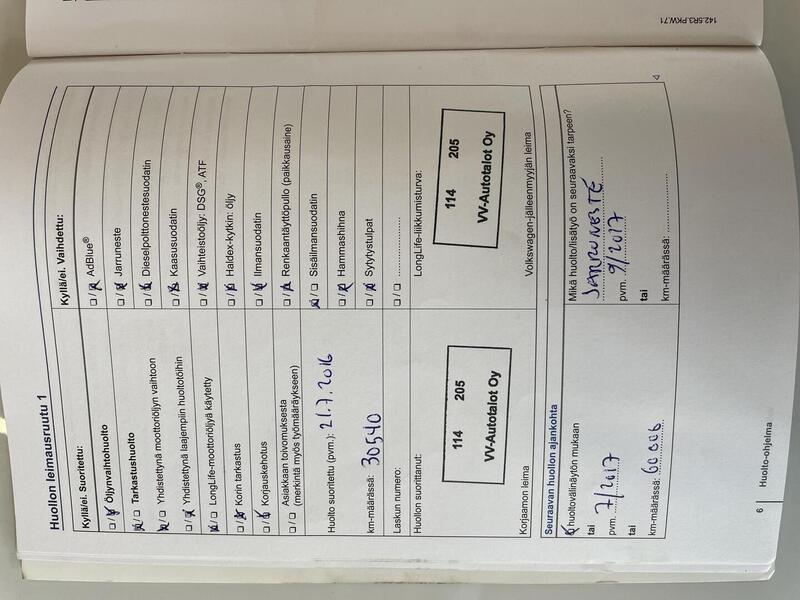 142.5R3.PKW.71
Huollon leimausruutu 1
Kyllä/ei. Suoritettu:
☐/☒ Öljynvaihtohuolto
☒/☐ Tarkastushuolto
☒/☐ Yhdistettynä moottoriöljyn vaihtoon
☐/☒ Yhdistettynä laajempiin huoltotöihin
☒/☐ LongLife-moottoriöljyä käytetty
☐/☒ Korin tarkastus
☐/☒ Korjauskehotus
Asiakkaan toivomuksesta
☐/☐ (merkintä myös työmääräykseen)
Huolto suoritettu (pvm.): 21.7.2016
km-määrässä: 30540
Laskun numero:
Huollon suorittanut:
114 205
VV-Autotalot Oy
Korjaamon leima
Kyllä/ei. Vaihdettu:
☐/☒ AdBlue®
☐/☒ Jarruneste
☐/☒ Dieselpolttonestesuodatin
☐/☒ Kaasusuodatin
☐/☒ Vaihteistoöljy: DSG®, ATF
☐/☒ Haldex-kytkin: öljy
☐/☒ Ilmansuodatin
☐/☒ Renkaantäyttöpullo (paikkausaine)
☒/☐ Sisäilmansuodatin
☐/☒ Hammashihna
☐/☒ Sytytystulpat
☐/☐ ....................
LongLife-liikkumisturva:
114 205
VV-Autotalot Oy
Volkswagen-jälleenmyyjän leima
Seuraavan huollon ajankohta
☒ huoltovälinäytön mukaan
tai
pvm. 7/2017
tai
km-määrässä: 60 006
Mikä huolto/lisätyö on seuraavaksi tarpeen?
JARRUNESTE
pvm. 9/2017
tai
km-määrässä:
6 Huolto-ohjelma